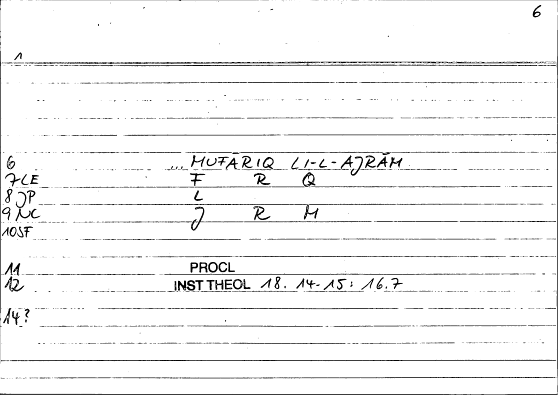 6
1
6 ... MUFĀRIQ LI-L-AJRĀM
7LE F R Q
8JP L
9NC J R M
10SF
11 PROCL
12 INST THEOL 18. 14-15: 16.7
14?